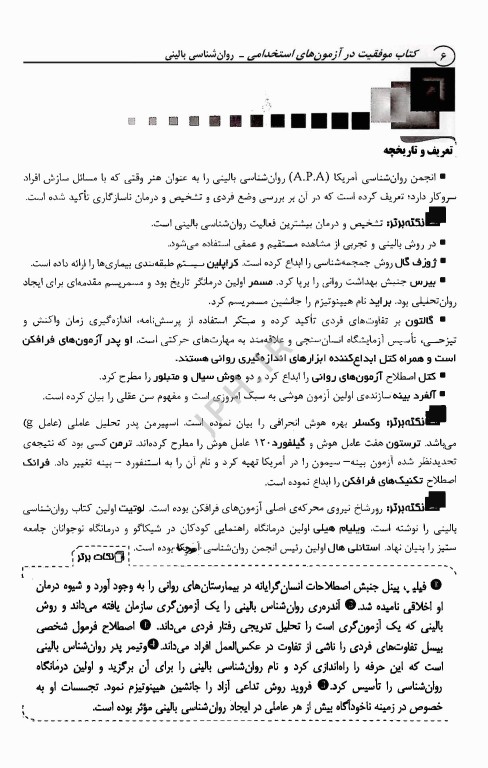 ۶ کتاب موفقیت در آزمون‌های استخدامی - روان‌شناسی بالینی
تعریف و تاریخچه
■ انجمن روان‌شناسی آمریکا (A.P.A) روان‌شناسی بالینی را به عنوان هنر وقتی که با مسائل سازش افراد
سروکار دارد؛ تعریف کرده است که در آن بر بررسی وضع فردی و تشخیص و درمان ناسازگاری تأکید شده است.
نکته‌برتر: تشخیص و درمان بیشترین فعالیت روان‌شناسی بالینی است.
■ در روش بالینی و تجربی از مشاهده مستقیم و عمقی استفاده می‌شود.
■ ژوزف گال روش جمجمه‌شناسی را ابداع کرده است. کراپلین سیستم طبقه‌بندی بیماری‌ها را ارائه داده است.
■ بیرس جنبش بهداشت روانی را برپا کرد. مسمر اولین درمانگر تاریخ بود و مسمریسم مقدمه‌ای برای ایجاد
روان‌تحلیلی بود. براید نام هیپنوتیزم را جانشین مسمریسم کرد.
■ گالتون بر تفاوت‌های فردی تأکید کرده و مبتکر استفاده از پرسش‌نامه، اندازه‌گیری زمان واکنش و
تیزحسی، تأسیس آزمایشگاه انسان‌سنجی و علاقه‌مند به مهارت‌های حرکتی است. او پدر آزمون‌های فرافکن
است و همراه کتل ابداع‌کننده ابزارهای اندازه‌گیری روانی هستند.
■ کتل اصطلاح آزمون‌های روانی را ابداع کرد و دو هوش سیال و متبلور را مطرح کرد.
■ آلفرد بینه سازنده‌ی اولین آزمون هوشی به سبک امروزی است و مفهوم سن عقلی را بیان کرده است.
نکته‌برتر: وکسلر بهره هوش انحرافی را بیان نموده است. اسپیرمن پدر تحلیل عاملی (عامل g)
می‌باشد. ترستون هفت عامل هوش و گیلفورد ۱۲۰ عامل هوش را مطرح کرده‌اند. ترمن کسی بود که نتیجه‌ی
تجدیدنظر شده آزمون بینه- سیمون را در آمریکا تهیه کرد و نام آن را به استنفورد - بینه تغییر داد. فرانک
اصطلاح تکنیک‌های فرافکن را ابداع نموده است.
نکته‌برتر: رورشاخ نیروی محرکه‌ی اصلی آزمون‌های فرافکن بوده است. لوتیت اولین کتاب روان‌شناسی
بالینی را نوشته است. ویلیام هیلی اولین درمانگاه راهنمایی کودکان در شیکاگو و درمانگاه نوجوانان جامعه
ستیز را بنیان نهاد. استانلی هال اولین رئیس انجمن روان‌شناسی آمریکا بوده است.
نکات برتر
فیلیپ پینل جنبش اصطلاحات انسان‌گرایانه در بیمارستان‌های روانی را به وجود آورد و شیوه درمان
او اخلاقی نامیده شد. آندره‌ی روان‌شناس بالینی را یک آزمون‌گری سازمان یافته می‌داند و روش
بالینی که یک آزمون‌گری است را تحلیل تدریجی رفتار فردی می‌داند. اصطلاح فرمول شخصی
بیسل تفاوت‌های فردی را ناشی از تفاوت در عکس‌العمل افراد می‌داند. ویتمر پدر روان‌شناس بالینی
است که این حرفه را راه‌اندازی کرد و نام روان‌شناسی بالینی را برای آن برگزید و اولین درمانگاه
روان‌شناسی را تأسیس کرد. فروید روش تداعی آزاد را جانشین هیپنوتیزم نمود. تجسسات او به
خصوص در زمینه ناخودآگاه بیش از هر عاملی در ایجاد روان‌شناسی بالینی مؤثر بوده است.